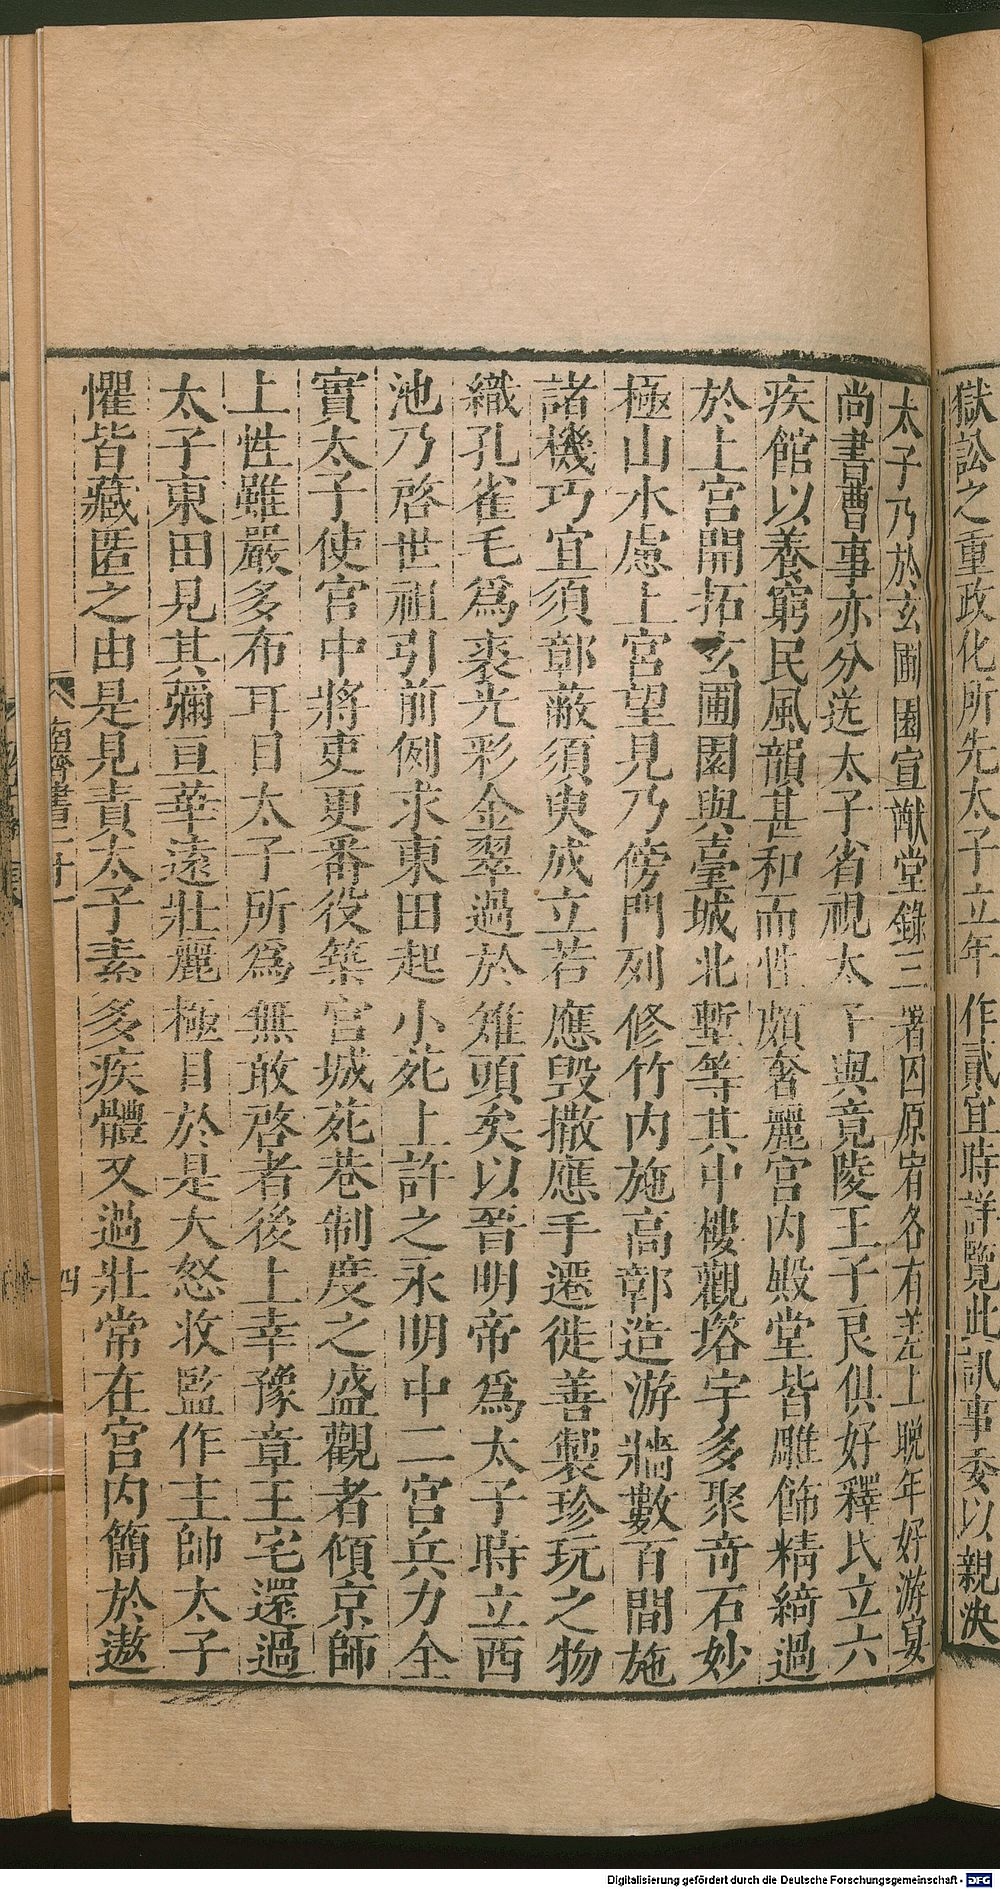 獄訟之重政化所先太子立年作貳宜時詳覽此訊事委以親決
太子乃於玄圃園宣猷堂錄三署囚原宥各有差上晚年好游宴
尚書曹事亦分送太子省視太子與竟陵王子良俱好釋氏立六
疾館以養窮民風韻甚和而性頗奢麗宮內殿堂皆雕飾精綺過
於上宮開拓玄圃園與臺城北塹等其中樓觀塔宇多聚奇石妙
極山水慮上宮望見乃傍門列修竹內施高鄣造游牆數百間施
諸機巧宜須鄣蔽須臾成立若應毀撤應手遷徙善製珍玩之物
織孔雀毛爲裘光彩金翠過於雉頭矣以晉明帝爲太子時立西
池乃啓世祖引前例求東田起小苑上許之永明中二宮兵力全
實太子使宮中將吏更番役築宮城苑巷制度之盛觀者傾京師
上性雖嚴多布耳目太子所爲無敢啓者後上幸豫章王宅還過
太子東田見其彌亘華遠壯麗極目於是大怒收監作主帥太子
懼皆藏匿之由是見責太子素多疾體又過壯常在宮內簡於遨
南齊書二十一 四
Digitalisierung gefördert durch die Deutsche Forschungsgemeinschaft - DFG